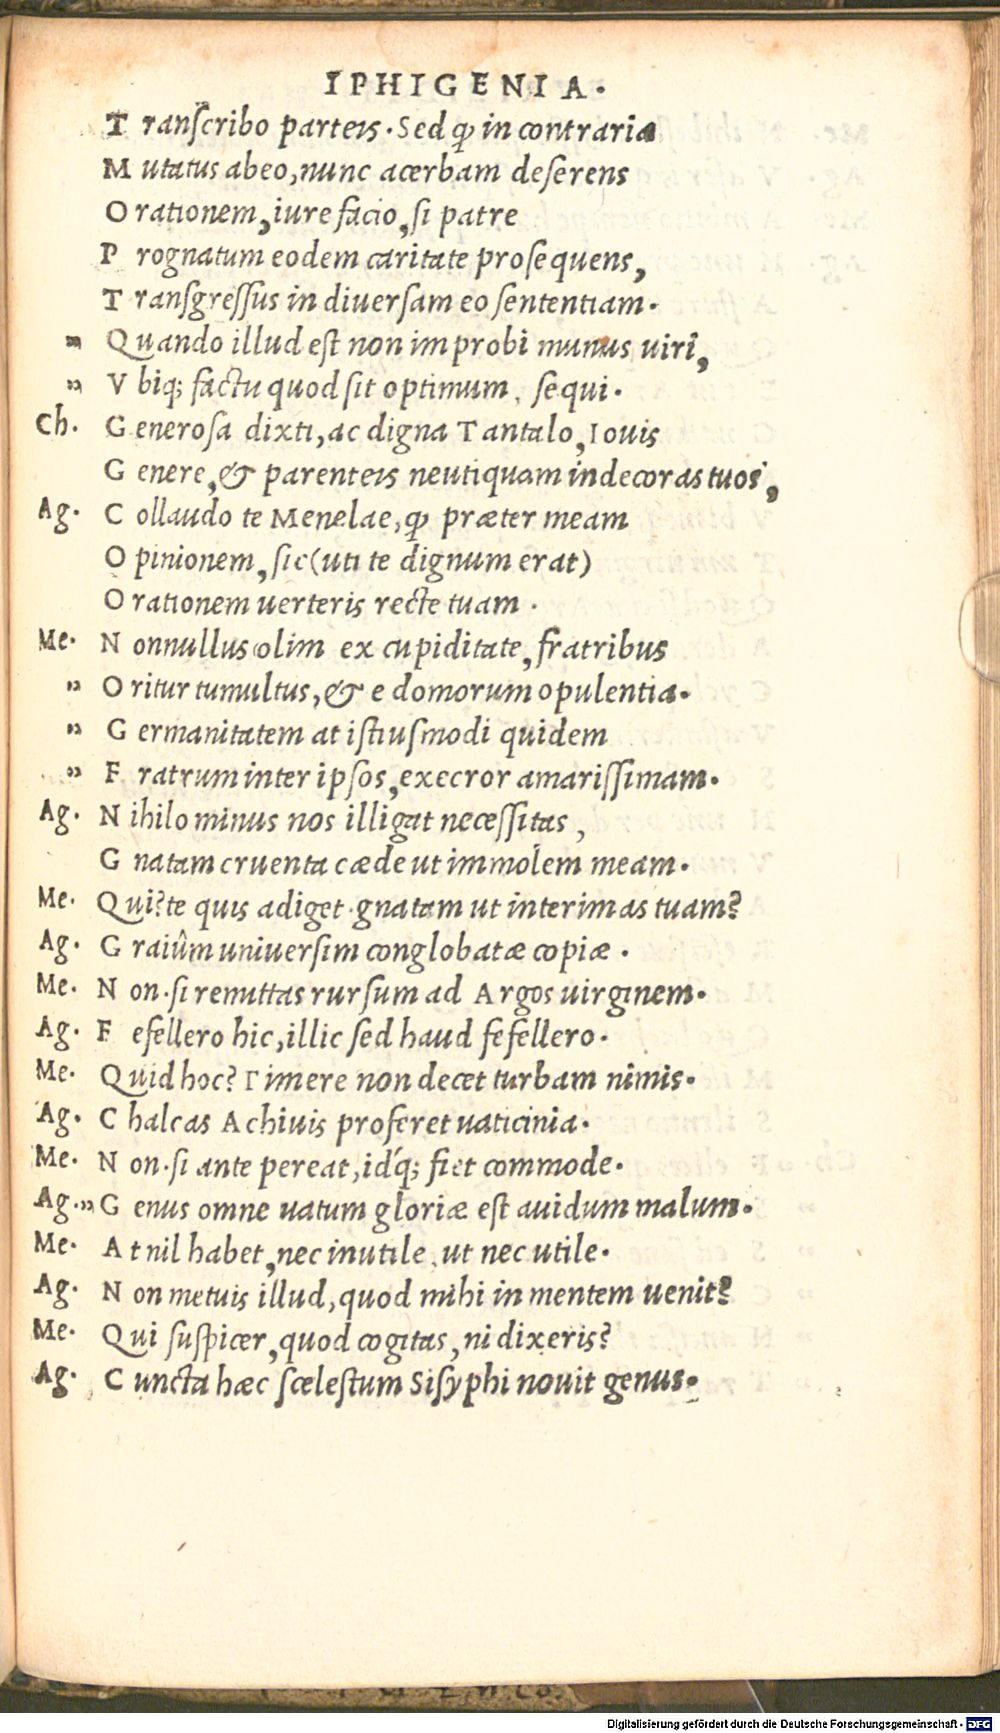 IPHIGENIA.
T ranſcribo parteis. Sed ꝙ in contraria
M utatus abeo, nunc acerbam deſerens
O rationem, iure facio, ſi patre
P rognatum eodem caritate proſequens,
T ranſgreſſus in diuerſam eo ſententiam.
" Quando illud eſt non improbi munus uiri,
" V biq; factu quod ſit optimum, ſequi.
Ch. G eneroſa dixti, ac digna Tantalo, Iouis
G enere, & parenteis neutiquam indecoras tuos,
Ag. C ollaudo te Menelae, ꝙ præter meam
O pinionem, ſic (uti te dignum erat)
O rationem uerteris recte tuam.
Me. N onnullus olim ex cupiditate, fratribus
" O ritur tumultus, & e domorum opulentia.
" G ermanitatem at iſtiuſmodi quidem
" F ratrum inter ipſos, execror amariſſimam.
Ag. N ihilo minus nos illigat neceſſitas,
G natam cruenta cæde ut immolem meam.
Me. Qui? te quis adiget gnatam ut interimas tuam?
Ag. G raiûm uniuerſim conglobatæ copiæ.
Me. N on. ſi remittas rurſum ad Argos uirginem.
Ag. F efellero hic, illic ſed haud fefellero.
Me. Quid hoc? Timere non decet turbam nimis.
Ag. C halcas Achiuis proferet uaticinia.
Me. N on. ſi ante pereat, id'q; fiet commode.
Ag. " G enus omne uatum gloriæ eſt auidum malum.
Me. A t nil habet, nec inutile, ut nec utile.
Ag. N on metuis illud, quod mihi in mentem uenit?
Me. Qui ſuſpicer, quod cogitas, ni dixeris?
Ag. C uncta hæc ſceleſtum Siſyphi nouit genus.
Digitalisierung gefördert durch die Deutsche Forschungsgemeinschaft - DFG